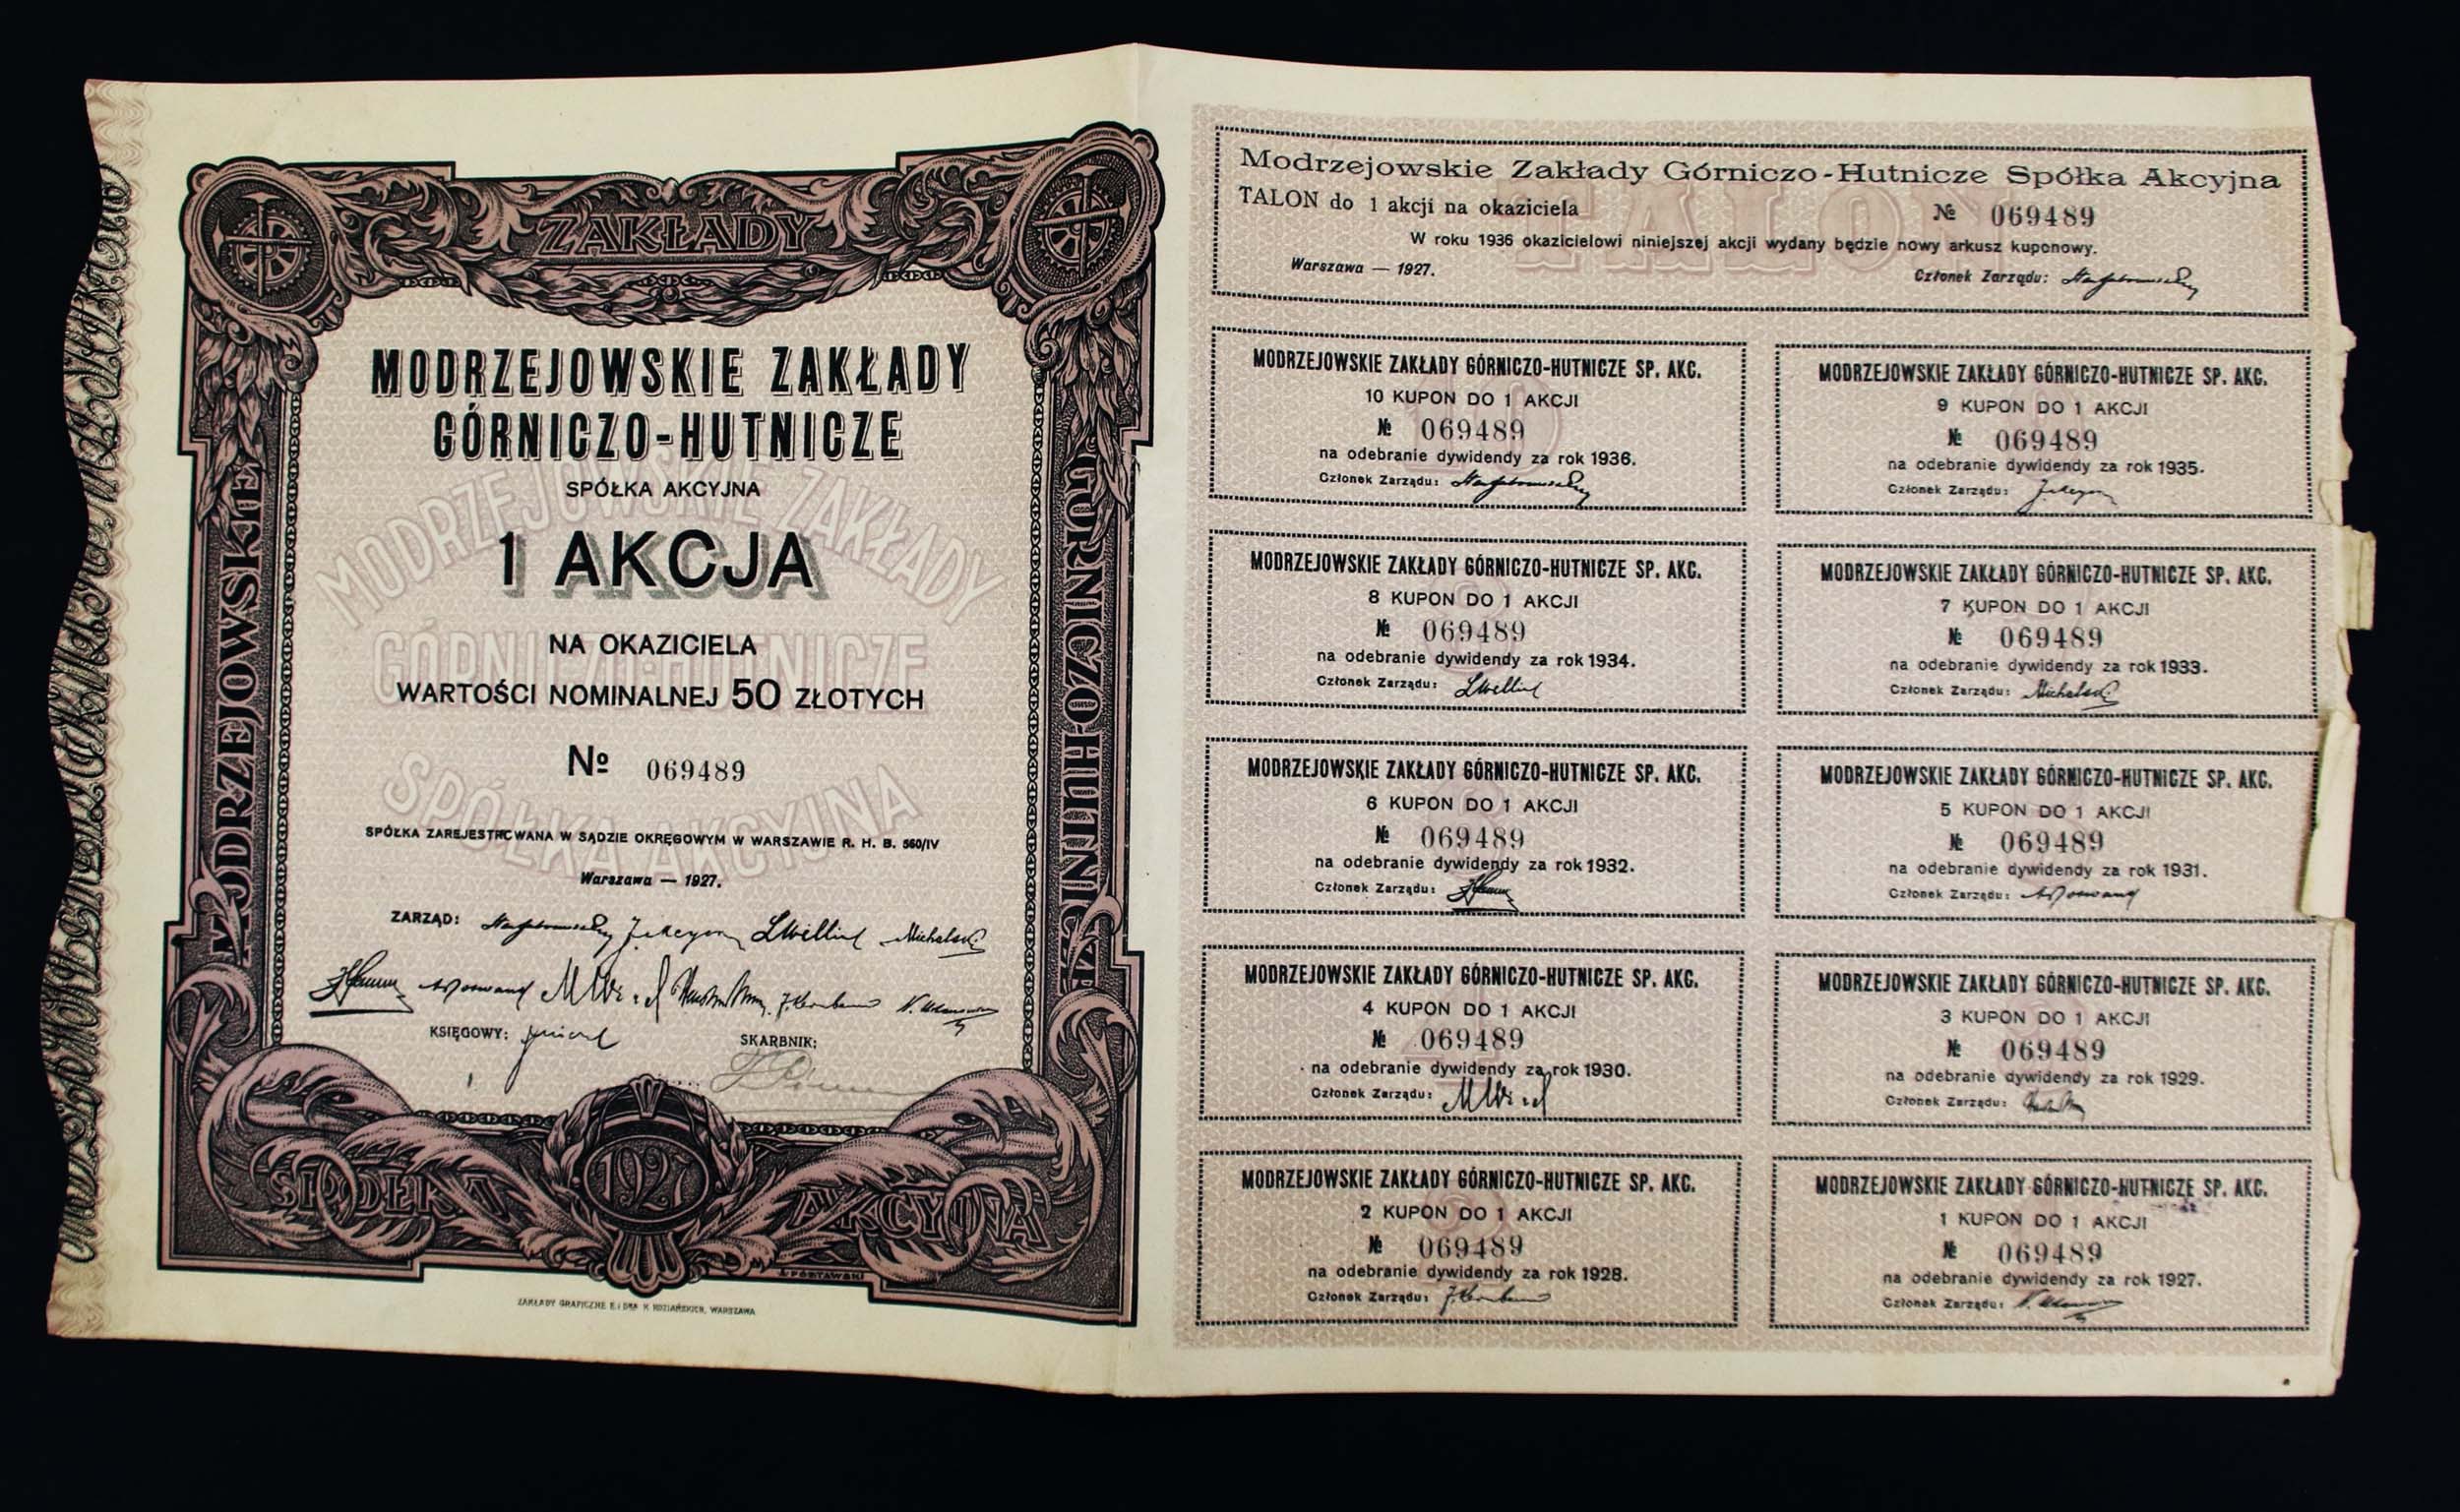 ZAKŁADY
MODRZEJOWSKIE
GÓRNICZO-HUTNICZE
MODRZEJOWSKIE ZAKŁADY
GÓRNICZO-HUTNICZE
SPÓŁKA AKCYJNA
1 AKCJA
NA OKAZICIELA
WARTOŚCI NOMINALNEJ 50 ZŁOTYCH
№ 069489
SPÓŁKA ZAREJESTROWANA W SĄDZIE OKRĘGOWYM W WARSZAWIE R. H. B. 560/IV
Warszawa — 1927.
ZARZĄD:
KSIĘGOWY:
SKARBNIK:
SPÓŁKA 1927 AKCYJNA
ZAKŁADY GRAFICZNE B. WARSZAWA
MODRZEJOWSKIE ZAKŁADY
GÓRNICZO-HUTNICZE
SPÓŁKA AKCYJNA
TALON
Modrzejowskie Zakłady Górniczo-Hutnicze Spółka Akcyjna
TALON do 1 akcji na okaziciela № 069489
W roku 1936 okazicielowi niniejszej akcji wydany będzie nowy arkusz kuponowy.
Warszawa — 1927. Członek Zarządu:
MODRZEJOWSKIE ZAKŁADY GÓRNICZO-HUTNICZE SP. AKC.
10 KUPON DO 1 AKCJI
№ 069489
na odebranie dywidendy za rok 1936.
Członek Zarządu:
MODRZEJOWSKIE ZAKŁADY GÓRNICZO-HUTNICZE SP. AKC.
9 KUPON DO 1 AKCJI
№ 069489
na odebranie dywidendy za rok 1935.
Członek Zarządu:
MODRZEJOWSKIE ZAKŁADY GÓRNICZO-HUTNICZE SP. AKC.
8 KUPON DO 1 AKCJI
№ 069489
na odebranie dywidendy za rok 1934.
Członek Zarządu:
MODRZEJOWSKIE ZAKŁADY GÓRNICZO-HUTNICZE SP. AKC.
7 KUPON DO 1 AKCJI
№ 069489
na odebranie dywidendy za rok 1933.
Członek Zarządu: Michalski
MODRZEJOWSKIE ZAKŁADY GÓRNICZO-HUTNICZE SP. AKC.
6 KUPON DO 1 AKCJI
№ 069489
na odebranie dywidendy za rok 1932.
Członek Zarządu:
MODRZEJOWSKIE ZAKŁADY GÓRNICZO-HUTNICZE SP. AKC.
5 KUPON DO 1 AKCJI
№ 069489
na odebranie dywidendy za rok 1931.
Członek Zarządu:
MODRZEJOWSKIE ZAKŁADY GÓRNICZO-HUTNICZE SP. AKC.
4 KUPON DO 1 AKCJI
№ 069489
na odebranie dywidendy za rok 1930.
Członek Zarządu:
MODRZEJOWSKIE ZAKŁADY GÓRNICZO-HUTNICZE SP. AKC.
3 KUPON DO 1 AKCJI
№ 069489
na odebranie dywidendy za rok 1929.
Członek Zarządu:
MODRZEJOWSKIE ZAKŁADY GÓRNICZO-HUTNICZE SP. AKC.
2 KUPON DO 1 AKCJI
№ 069489
na odebranie dywidendy za rok 1928.
Członek Zarządu:
MODRZEJOWSKIE ZAKŁADY GÓRNICZO-HUTNICZE SP. AKC.
1 KUPON DO 1 AKCJI
№ 069489
na odebranie dywidendy za rok 1927.
Członek Zarządu: